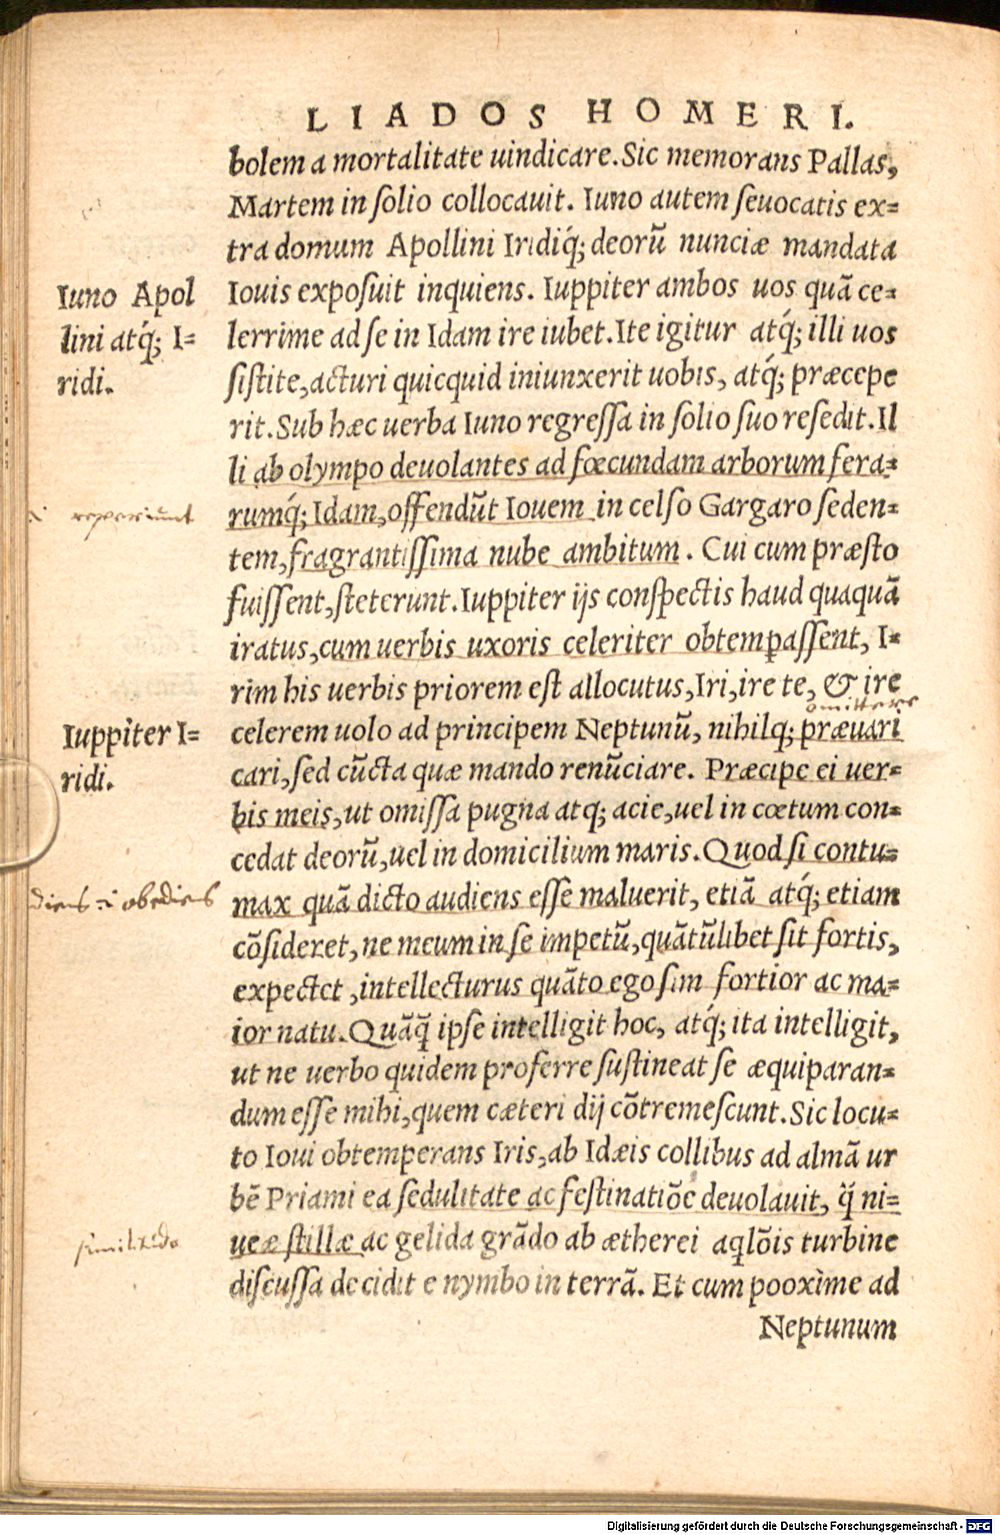 LIADOS HOMERI.
bolem a mortalitate uindicare. Sic memorans Pallas,
Martem in ſolio collocauit. Iuno autem ſeuocatis ex=
tra domum Apollini Iridiq́; deorũ nunciæ mandata
Iuno Apol
Iouis expoſuit inquiens. Iuppiter ambos uos quã ce=
lini atq́; I=
lerrime ad ſe in Idam ire iubet. Ite igitur atq́; illi uos
ridi.
ſiſtite, acturi quicquid iniunxerit uobis, atq́; præcepe
rit. Sub hæc uerba Iuno regreſſa in ſolio ſuo reſedit. Il
li ab olympo deuolantes ad fœcundam arborum fera=
reperiunt
rumq́; Idam, offendũt Iouem in celſo Gargaro ſeden=
tem, fragrantiſſima nube ambitum. Cui cum præſto
fuiſſent, ſteterunt. Iuppiter ijs conſpectis haud quaquã
iratus, cum uerbis uxoris celeriter obtemꝑaſſent, I=
rim his uerbis priorem eſt allocutus, Iri, ire te, & ire
omittere
Iuppiter I=
celerem uolo ad principem Neptunũ, nihilq; præuari
ridi.
cari, ſed cũcta quæ mando renũciare. Præcipe ei uer=
bis meis, ut omiſſa pugna atq; acie, uel in cœtum con=
cedat deorũ, uel in domicilium maris. Quod ſi contu=
diens .i. obediens
max quã dicto audiens eſſe maluerit, etiã atq́; etiam
cõſideret, ne meum in ſe impetũ, quãtũlibet ſit fortis,
expectet, intellecturus quãto ego ſim fortior ac ma=
ior natu. Quãq̃ ipſe intelligit hoc, atq́; ita intelligit,
ut ne uerbo quidem proferre ſuſtineat ſe æquiparan=
dum eſſe mihi, quem cæteri dij cõtremeſcunt. Sic locu=
to Ioui obtemperans Iris, ab Idæis collibus ad almã ur
bẽ Priami ea ſedulitate ac feſtinatiõe deuolauit, q̃ ni=
similitudo
ueæ ſtillæ ac gelida grãdo ab ætherei aqlõis turbine
diſcuſſa decidit e nymbo in terrã. Et cum pooxime ad
Neptunum
Digitalisierung gefördert durch die Deutsche Forschungsgemeinschaft - DFG